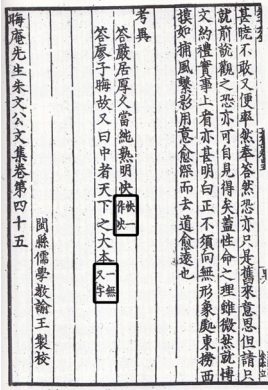 甚曉不敢又便率然奉答然恐亦只是舊來意思但請只
就前說觀之恐亦可自見得矣蓋性命之理雖微然就博
文約禮實事上看亦甚明白正不須向無形象處東撈西
摸如捕風繫影用意愈深而去道愈遠也
考異
答嚴居厚久當純熟明快快一作决
答廖子晦故又曰中者天下之大本一無又字
閩縣儒學教諭王製校
晦庵先生朱文公文集卷第四十五